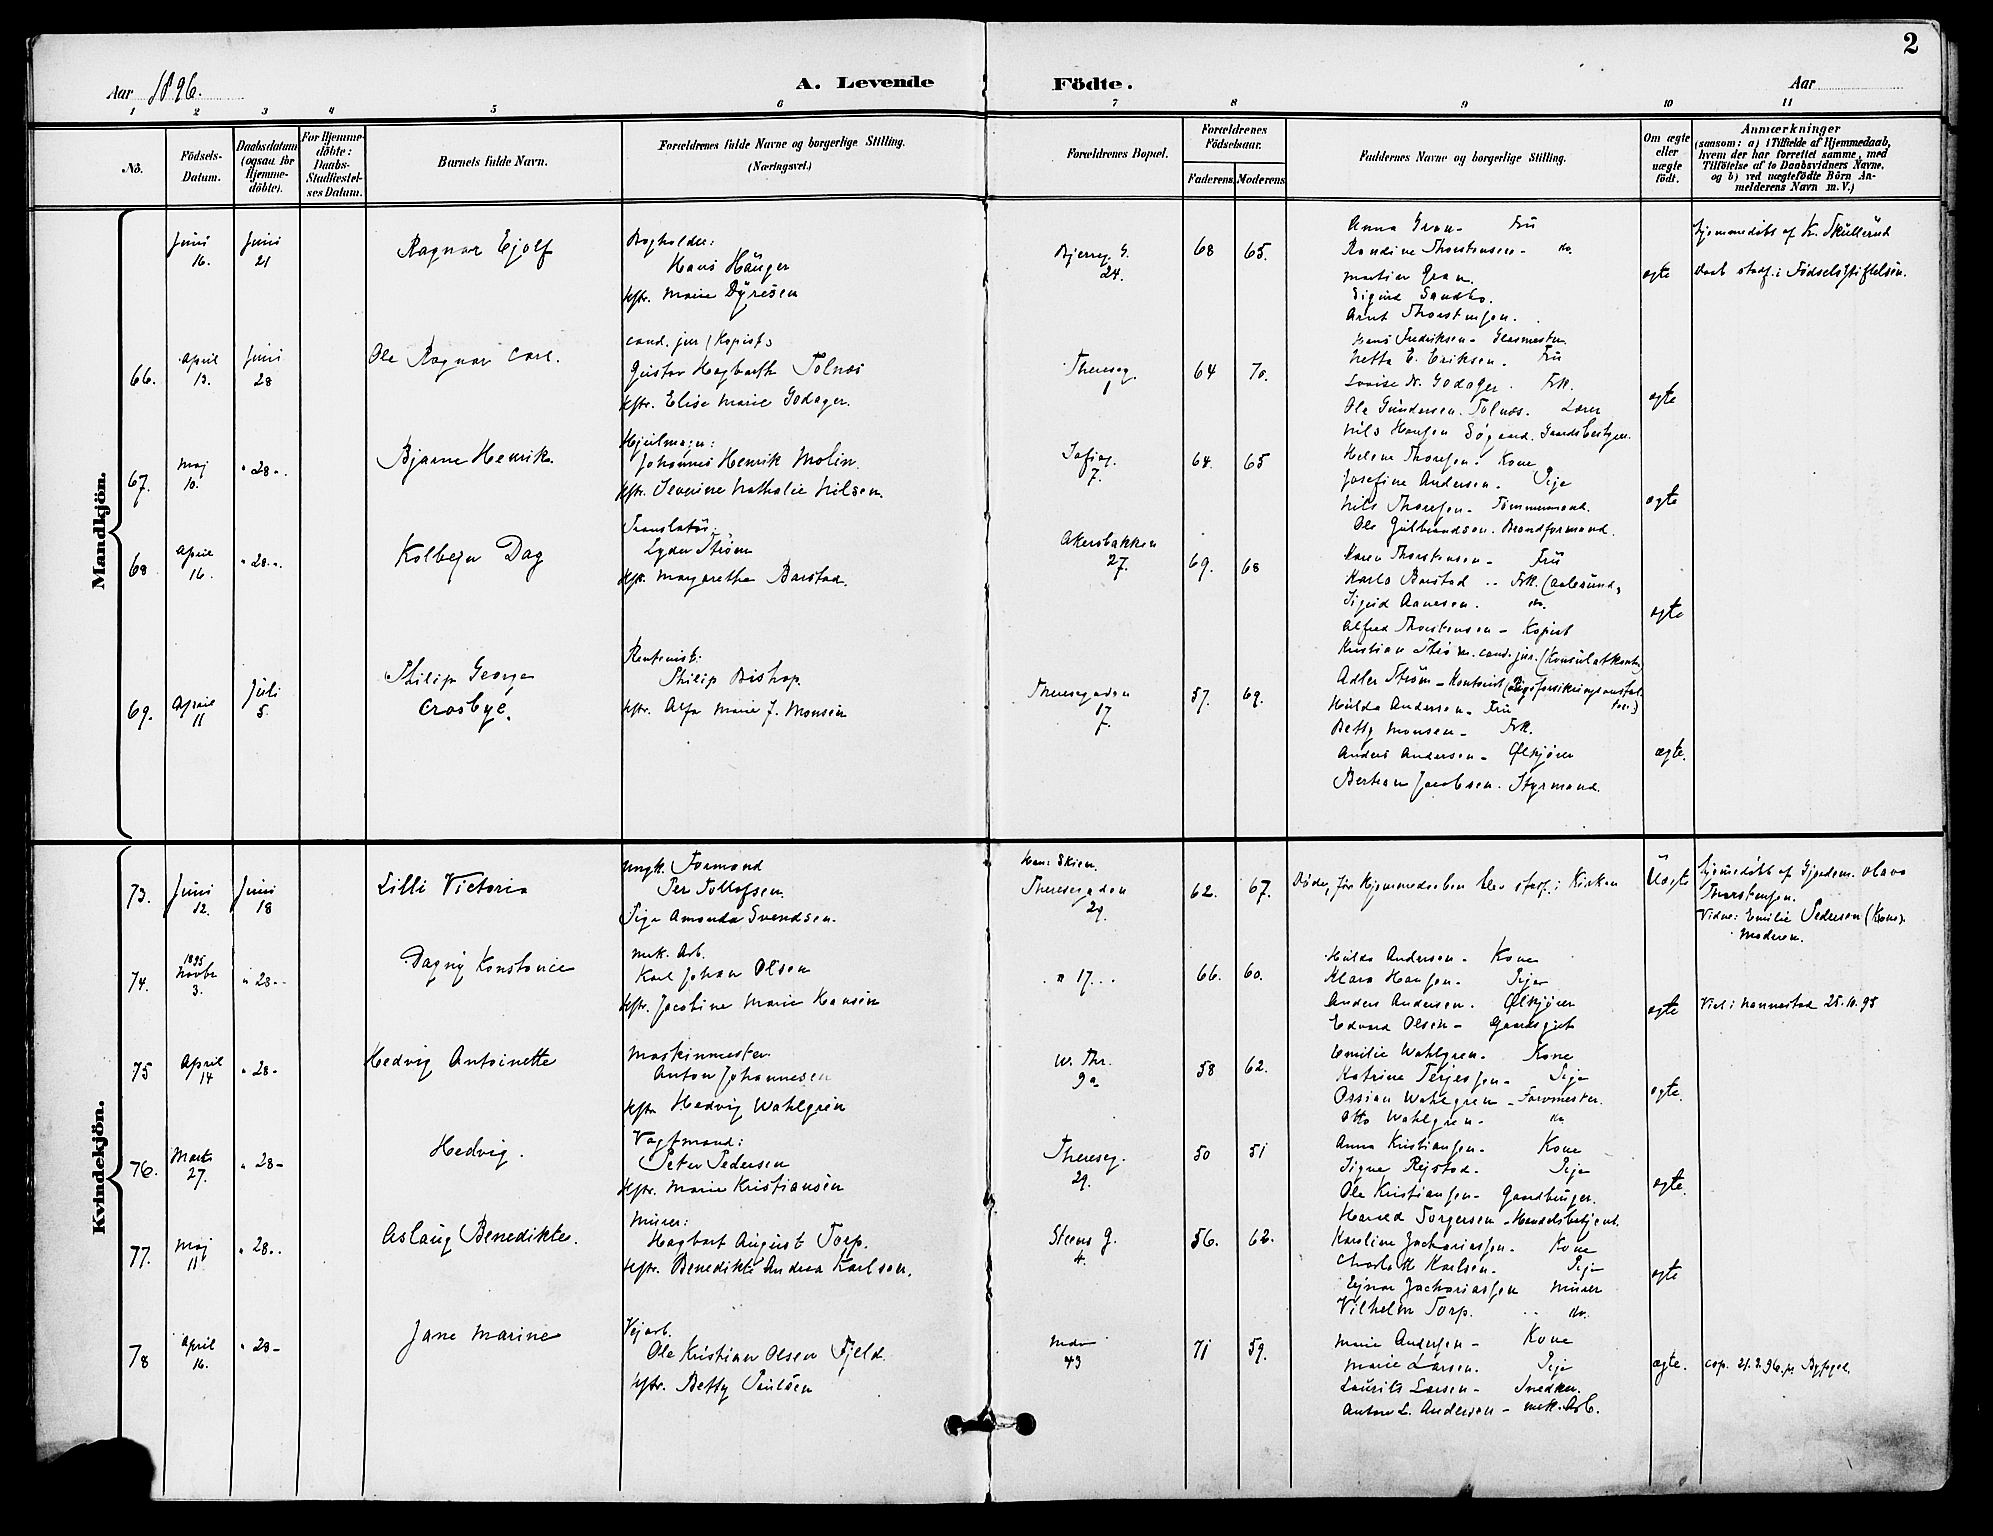 2
Aar 1896. A. Levende Födte. Aar
1 2 3 4 5 6 7 8 9 10 11
No.
Födsels-Datum.
Daabsdatum (ogsaa for Hjemme-döbte).
For Hjemme-döbte: Daabs-Stadfæstel-ses Datum.
Barnets fulde Navn.
Forældrenes fulde Navne og borgerlige Stilling.
(Næringsvei.)
Forældrenes Bopæl.
Forældrenes Födselsaar.
Faderens Moderens
Faddernes Navne og borgerlige Stilling.
Om ægte eller uægte födt.
Anmærkninger
(saasom: a) i Tilfælde af Hjemmedaab,
hvem der har forrettet samme, med
Tilföielse af to Daabsvidners Navne.
og b) ved uægtefödte Börn An-
melderens Navn m. V.)
Mandkjön.
Juni 16. Juni 21 Ragnar Ejolf
Bogholder:
Hans Hauger
Hstr. Marie Dyresen
24. 68 65.
Anna Gran - Fru
Randine Thorstensen - do.
Martin Gran
Sigurd Sandbo.
Arnt Thorstensen.
ægte
Hjemmedøbt af K. Skullerud
Daab stadf. i Fødselsstiftelsen.
66. April 13. Juni 28 Ole Ragnar Carl.
cand. jur (Kopist)
Gustav Hagbarth Tolnæs
Hstr. Elise Marie Godager.
Thereseg. 1 64 70.
Hans Fredriksen - Glasmester
Netta E. Eriksen. Fru
Lovise N. Godager. Frk.
Ole Gundersen Tolnæs. Lærer
Nils Hansen Søgaard. Gaardsbestyrer.
ægte
67. Maj 10. " 28 " Bjarne Henrik.
Hjulmager:
Johannes Henrik Molin.
Hstr. Severine Nathalie Nilsen.
Sofieg. 7. 64. 65
Helene Thoresen. Kone
Josefine Andersen. Pige
Nils Thoresen - Tømmermand.
Ole Gulbrandsen. Brandformand.
ægte
68 April 16. " 28 " Kolbejn Dag
Translatør:
Lyder Strøm
Hstr. Margarethe Barstad.
Akersbakken 27. 69. 68
Karen Thorstensen - Fru
Karla Barstad " Frk. (Aalesund)
Sigrid Aanesen. do.
Alfred Thorstensen - Kopist
Kristian Strøm. cand. jur. (Konsulatkontor)
Adler Strøm - Kontorist
ægte
69. April 11 Juli 5. Philip George Crosbye.
Rentenist:
Philip Bishop
Hstr. Alfa Marie J. Monsen
Theresegaden 17. 57. 69.
Hulda Andersen - Fru
Betty Monsen - Frk.
Anders Andersen - Ølkjører
Bertran Jacobsen. Styrmand.
ægte.
Kvindekjön.
73. Juni 12. Juni 18 Lilli Victoria
Ungk. Formand
Per Tollofsen.
Pige Amanda Svendsen.
Han: Skien.
Theresegaden 29. 62. 67.
Døde, før Hjemmedaaben blev stadf. i Kirken
Uægte
Hjemmedøbt af Gjordem. Olava
Thorstensen.
Vidne: Emilie Pedersen (Kone).
Moderen.
74. 1895 Novbr 3. " 28 " Dagny Konstance
mek. Arb.
Karl Johan Olsen
Hstr. Jacobine Marie Hansen
" 17. 66. 60.
Hulda Andersen - Kone
Klara Hansen. Pige
Anders Andersen. Ølkjører
Edvard Olsen - Gaardsgut
ægte
Viel i Nannestad 25.10.95
75 April 14 " 28 - Hedvig Antoinette
Maskinmester.
Anton Johannesen
Hstr Hedvig Wahlgren
W. Thr. 9a 58 62.
Emilie Wahlgren. Kone
Katrine Terjessen - Pige
Ossian Wahlgren - Farvmester.
Otto Wahlgren - do
ægte.
76. Marts 27. " 28 - Hedvig.
Vagtmand:
Peter Pedersen
Hstr. Marie Kristiansen
Thereseg. 29. 50 51
Anna Kristiansen - Kone
Signe Rejstad. Pige
Ole Kristiansen - Gaardbruger.
Harald Torgersen - Handelsbetjent.
ægte.
77. Maj 11 " 28 " Aslaug Benedikte.
Murer:
Hagbart August Torp.
Hstr. Benedikte Andrea Karlsen.
Steens G. 4. 56. 62.
Karoline Zachariassen. Kone
Charlotte Karlsen. Pige
Ejnar Zachariassen Murer
Vilhelm Torp. do.
ægte
78 April 16. " 28 - Jane Marine
Vejarb.
Ole Kristian Olsen Fjeld.
Hstr. Betty Paulsen
43 71 59.
Marie Andersen - Kone
Marie Larsen. Pige
Laurits Larsen - Snedker.
Anton L. Andersen - mek. Arb.
ægte.
cop. 21.2.96